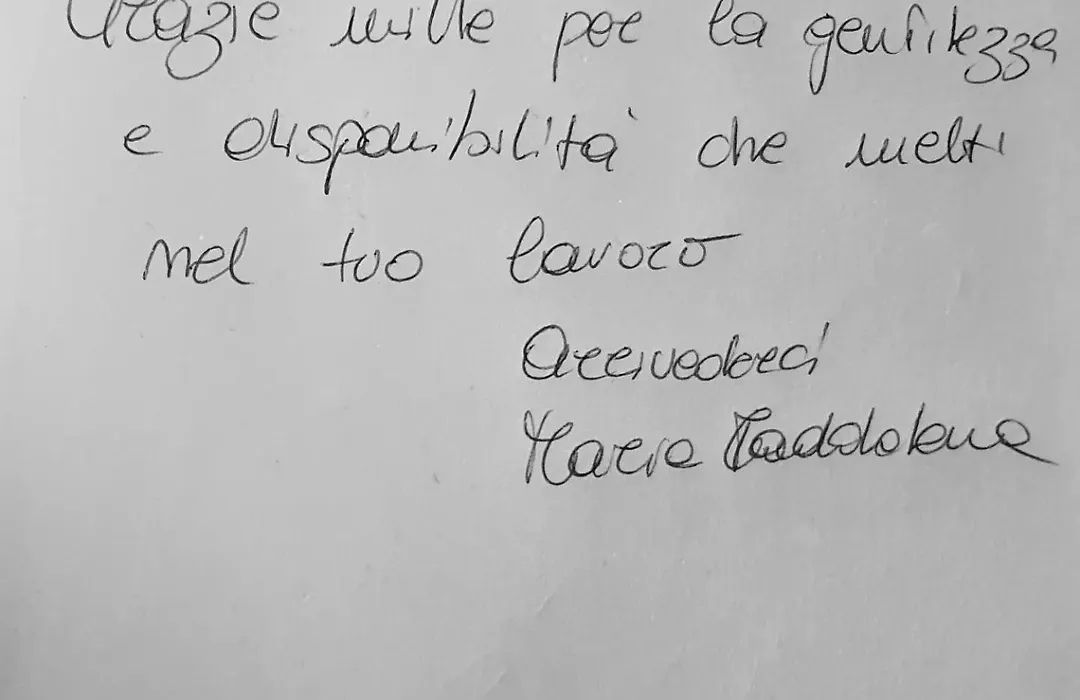 Grazie mille per la gentilezza
e disponibilità che metti
nel tuo lavoro
Arrivederci
Maria Maddalena